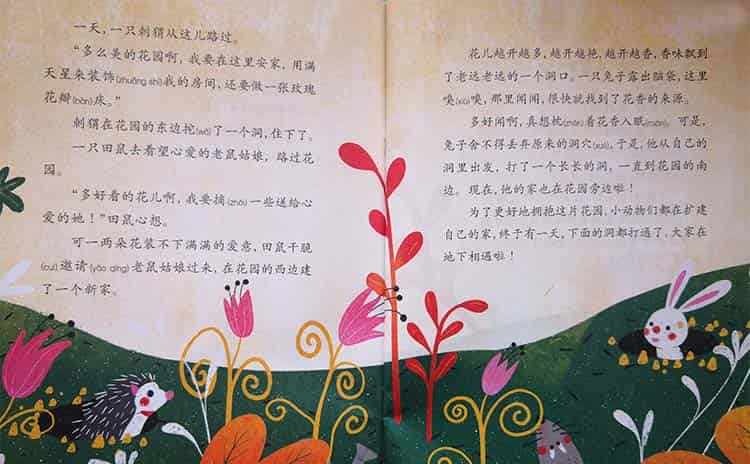 一天，一只刺猬从这儿路过。
“多么美的花园啊，我要在这里安家，用满
天星来装饰(zhuāng shì)我的房间，还要做一张玫瑰
花瓣(bàn)床。”
刺猬在花园的东边挖(wā)了一个洞，住下了。
一只田鼠去看望心爱的老鼠姑娘，路过花
园。
“多好看的花儿啊，我要摘(zhāi)一些送给心
爱的她！”田鼠心想。
可一两朵花装不下满满的爱意，田鼠干脆
(cuì)邀请(yāo qǐng)老鼠姑娘过来，在花园的西边建
了一个新家。
花儿越开越多，越开越艳，越开越香，香味飘到
了老远老远的一个洞口。一只兔子露出脑袋，这里
嗅(xiù)嗅，那里闻闻，很快就找到了花香的来源。
多好闻啊，真想枕(zhěn)着花香入眠(mián)。可是，
兔子舍不得丢弃原来的洞穴(xué)，于是，他从自己的
洞里出发，打了一个长长的洞，一直到花园的南
边。现在，他的家也在花园旁边啦！
为了更好地拥抱这片花园，小动物们都在扩建
自己的家，终于有一天，下面的洞都打通了，大家在
地下相遇啦！